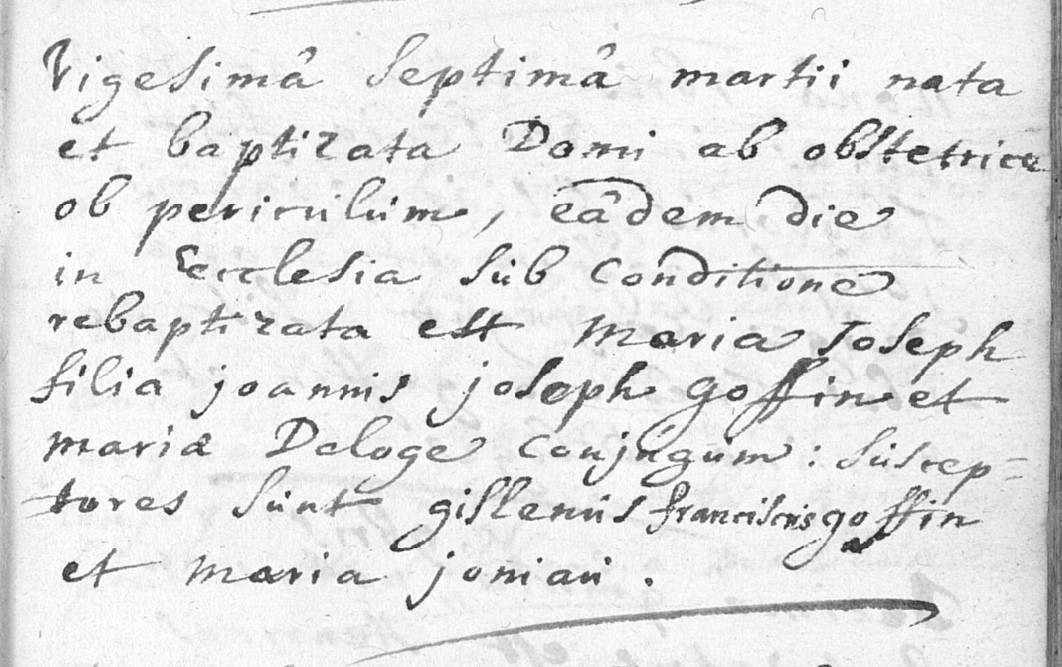 Vigesimâ Septimâ martii nata
et baptizata Domi ab obstetrice
ob periculum, eâdem die
in Ecclesia sub conditione
rebaptizata est maria Joseph
filia joannis joseph goffin et
mariæ Deloge conjugum : suscep-
tores sunt gislenus franciscus goffin
et maria joniau .